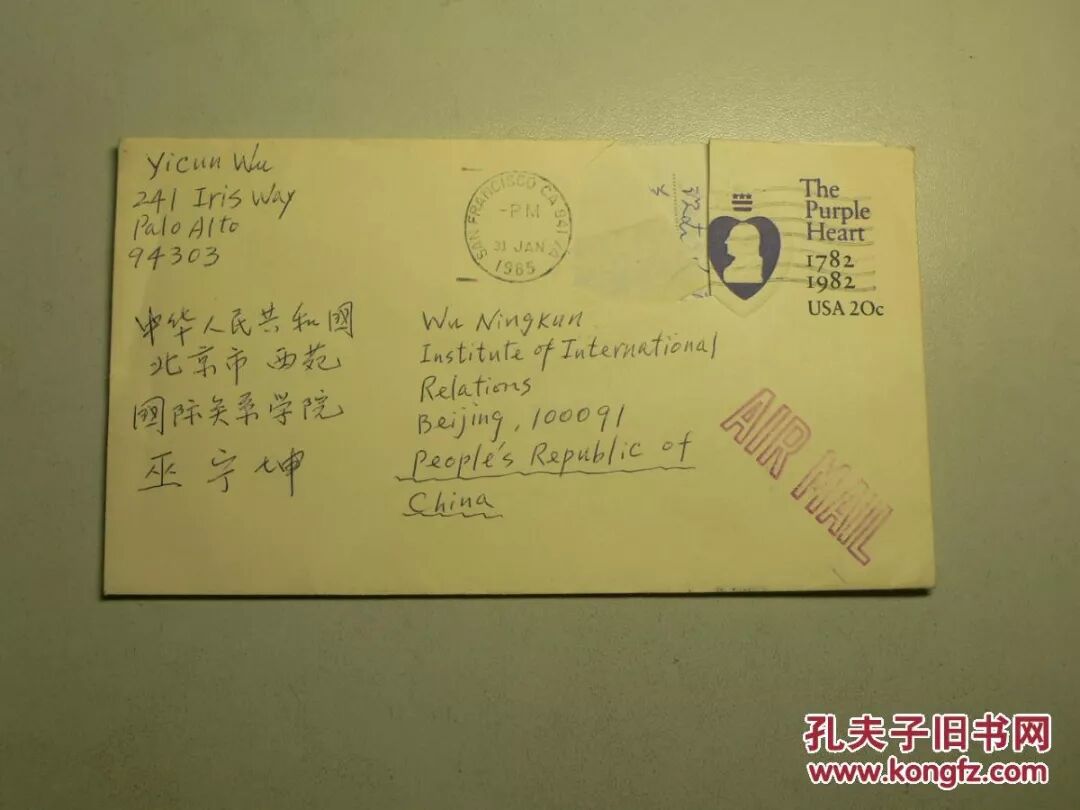 Yicun Wu
241 Iris Way
Palo Alto
94303
SAN FRANCISCO CA 941
-PM
31 JAN
1985
The
Purple
Heart
1782
1982
USA 20c
中华人民共和國
北京市 西苑
國际关系学院
巫宁坤
Wu Ningkun
Institute of International
Relations
Beijing, 100091
People's Republic of
China
AIR MAIL
孔夫子旧书网
www.kongfz.com